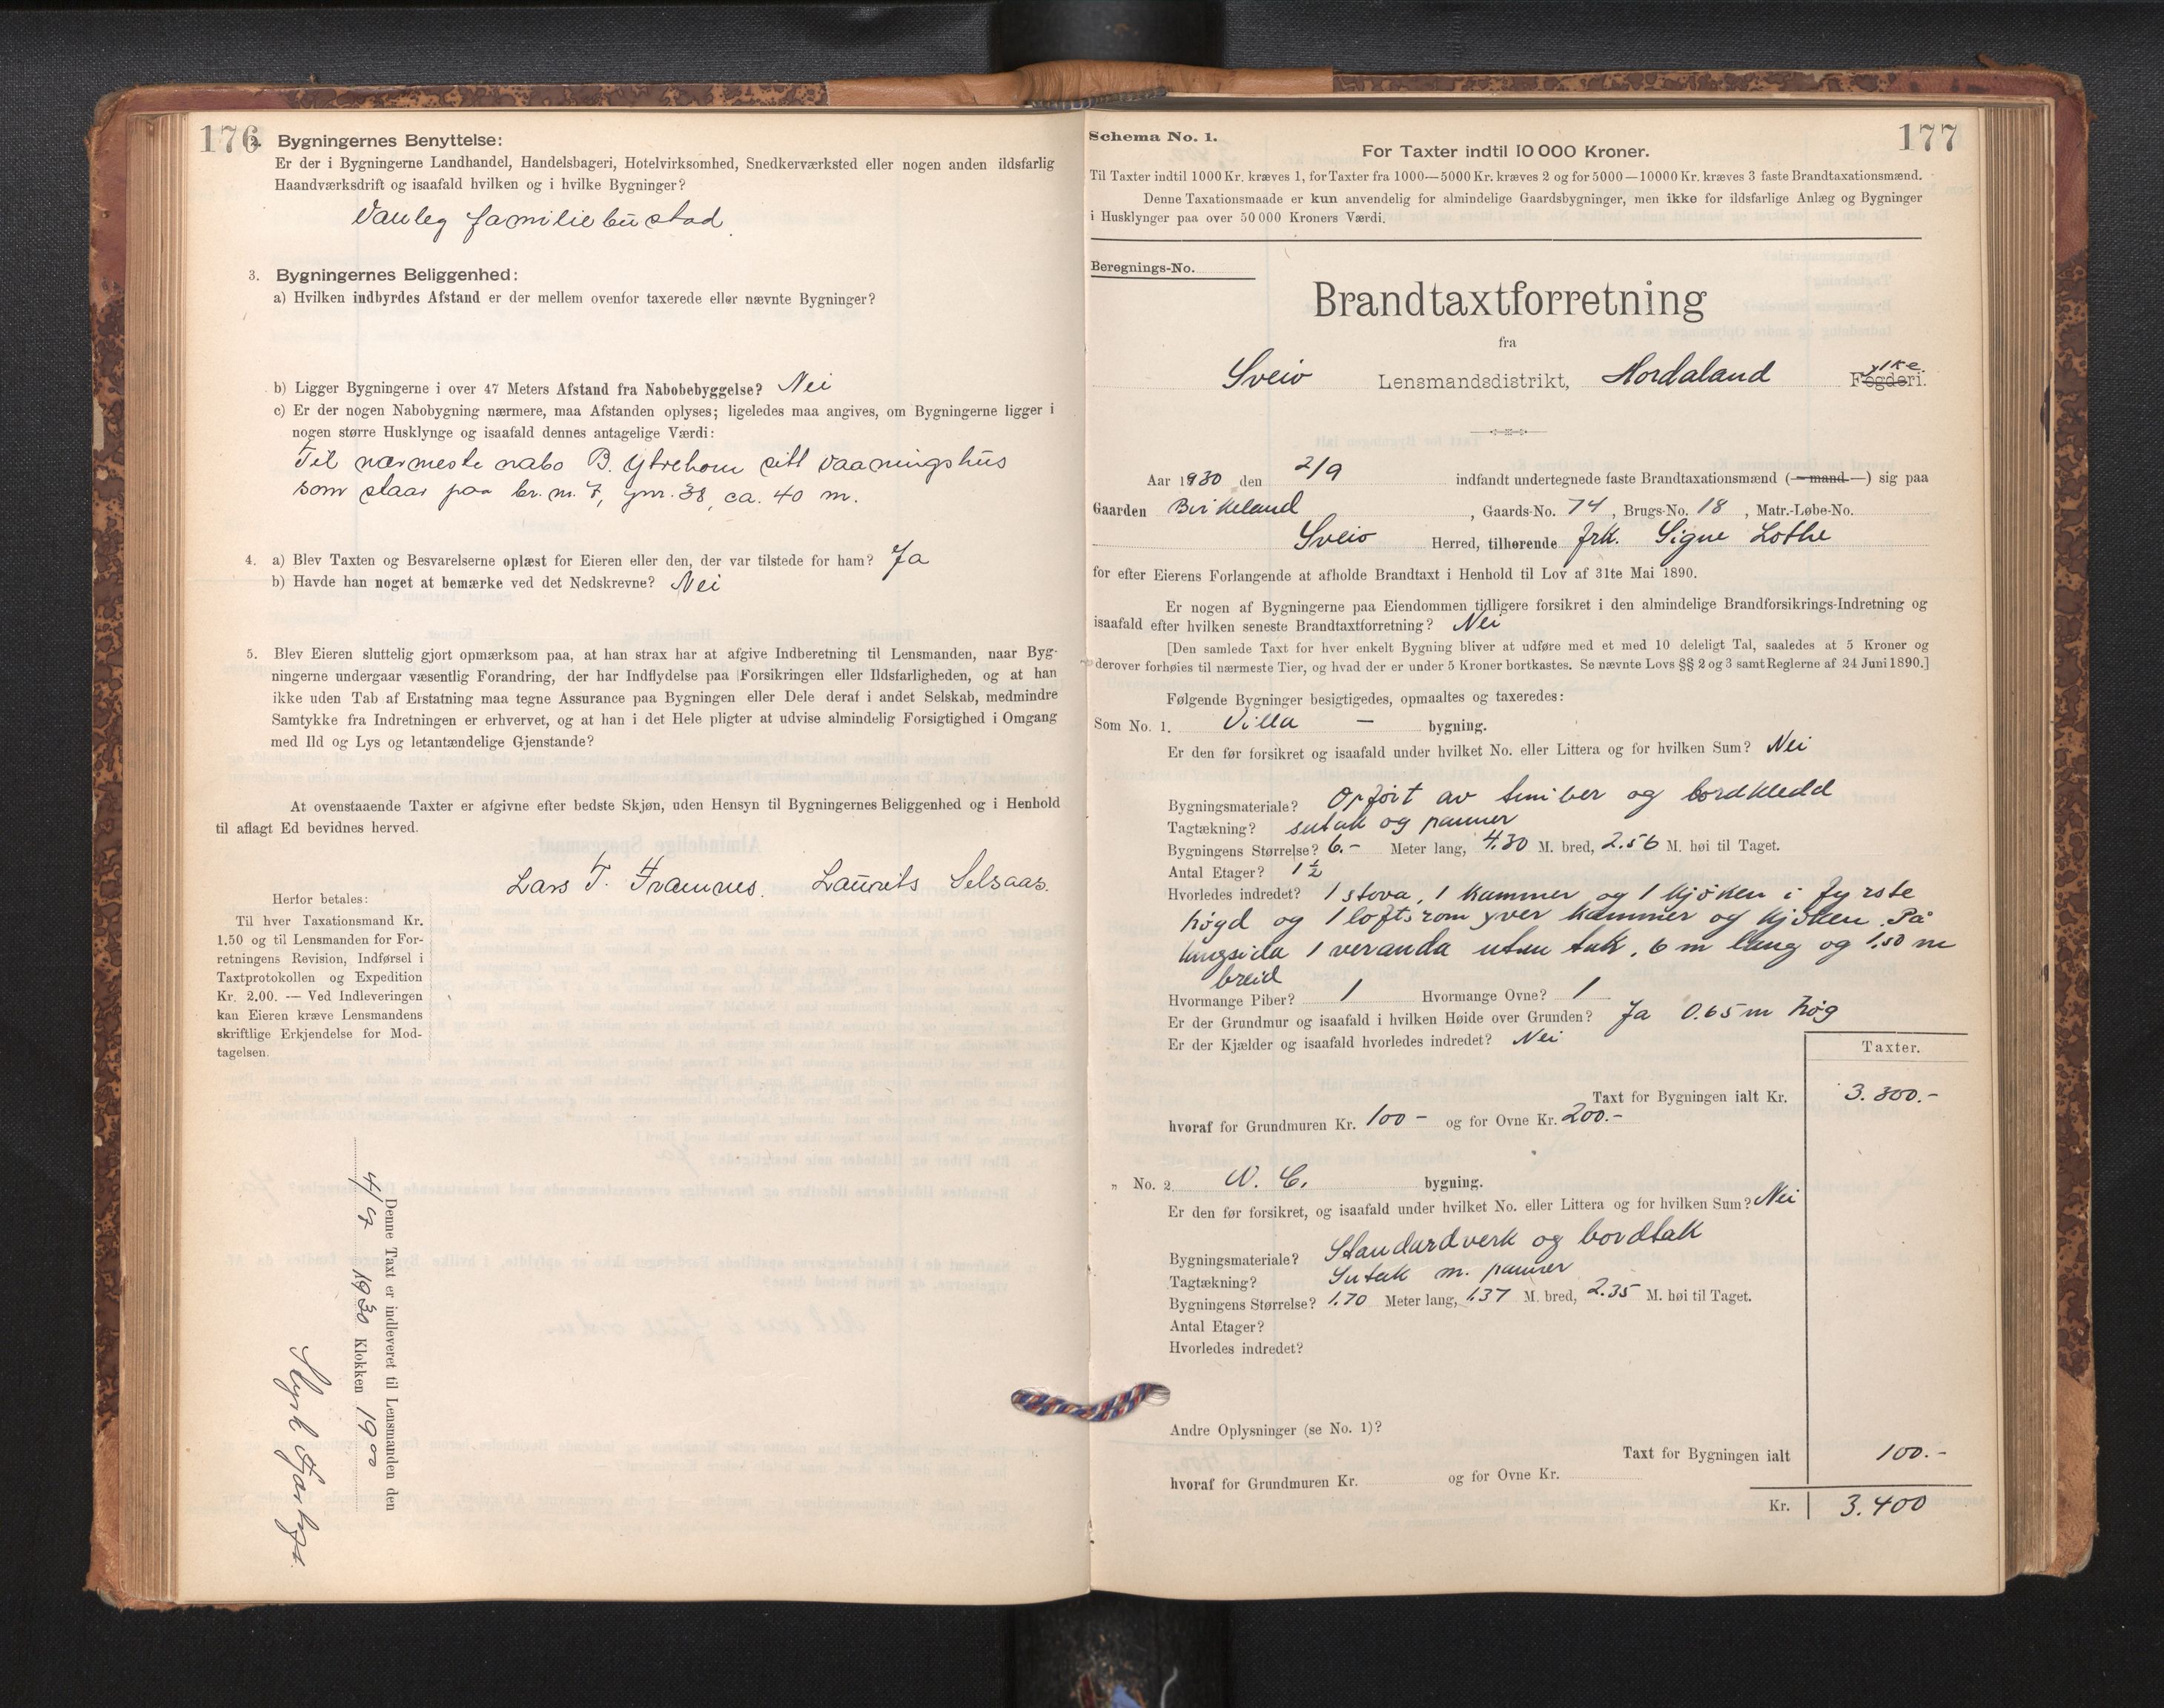 176
2. Bygningernes Benyttelse:
Er der i Bygningerne Landhandel, Handelsbageri, Hotelvirksomhed, Snedkerværksted eller nogen anden ildsfarlig
Haandværksdrift og isaafald hvilken og i hvilke Bygninger?
Vanleg familiebustad.
3. Bygningernes Beliggenhed:
a) Hvilken indbyrdes Afstand er der mellem ovenfor taxerede eller nævnte Bygninger?
b) Ligger Bygningerne i over 47 Meters Afstand fra Nabobebyggelse? Nei
c) Er der nogen Nabobygning nærmere, maa Afstanden oplyses; ligeledes maa angives, om Bygningerne ligger i
nogen større Husklynge og isaafald dennes antagelige Værdi:
Til nærmeste nabo B. Ytrehom sitt vaaningshus
som staar paa br. nr. 7, gnr. 38, ca. 40 m.
4. a) Blev Taxten og Besvarelserne oplæst for Eieren eller den, der var tilstede for ham? Ja
b) Havde han noget at bemærke ved det Nedskrevne? Nei
5. Blev Eieren sluttelig gjort opmærksom paa, at han strax har at afgive Indberetning til Lensmanden, naar Byg-
ningerne undergaar væsentlig Forandring, der har Indflydelse paa Forsikringen eller Ildsfarligheden, og at han
ikke uden Tab af Erstatning maa tegne Assurance paa Bygningen eller Dele deraf i andet Selskab, medmindre
Samtykke fra Indretningen er erhvervet, og at han i det Hele pligter at udvise almindelig Forsigtighed i Omgang
med Ild og Lys og letantændelige Gjenstande?
At ovenstaaende Taxter er afgivne efter bedste Skjøn, uden Hensyn til Bygningernes Beliggenhed og i Henhold
til aflagt Ed bevidnes herved.
Lars T. Framnes. Laurits Selsaas.
Herfor betales:
Til hver Taxationsmand Kr.
1.50 og til Lensmanden for For-
retningens Revision, Indførsel i
Taxtprotokollen og Expedition
Kr. 2.00. — Ved Indleveringen
kan Eieren kræve Lensmandens
skriftlige Erkjendelse for Mod-
tagelsen.
Denne Taxt er indleveret til Lensmanden den
4/9 1930 Klokken 19 00
177
Schema No. 1.
For Taxter indtil 10 000 Kroner.
Til Taxter indtil 1000 Kr. kræves 1, for Taxter fra 1000—5000 Kr. kræves 2 og for 5000—10000 Kr. kræves 3 faste Brandtaxationsmænd.
Denne Taxationsmaade er kun anvendelig for almindelige Gaardsbygninger, men ikke for ildsfarlige Anlæg og Bygninger
i Husklynger paa over 50 000 Kroners Værdi.
Beregnings-No.
Brandtaxtforretning
fra
Sveio Lensmandsdistrikt, Hordaland Fogderi. ylke.
Aar 1930 den 2/9 indfandt undertegnede faste Brandtaxationsmænd (—mand—) sig paa
Gaarden Birkeland, Gaards-No. 74, Brugs-No. 18, Matr.-Løbe-No.
Sveio Herred, tilhørende frk. Signe Lothe
for efter Eierens Forlangende at afholde Brandtaxt i Henhold til Lov af 31te Mai 1890.
Er nogen af Bygningerne paa Eiendommen tidligere forsikret i den almindelige Brandforsikrings-Indretning og
isaafald efter hvilken seneste Brandtaxtforretning? Nei
[Den samlede Taxt for hver enkelt Bygning bliver at udføre med et med 10 deleligt Tal, saaledes at 5 Kroner og
derover forhøies til nærmeste Tier, og hvad der er under 5 Kroner bortkastes. Se nævnte Lovs §§ 2 og 3 samt Reglerne af 24 Juni 1890.]
Følgende Bygninger besigtigedes, opmaaltes og taxeredes:
Som No. 1. Villa – bygning.
Er den før forsikret og isaafald under hvilket No. eller Littera og for hvilken Sum? Nei
Bygningsmateriale? Opført av tmiber og bordkledd
Tagtækning? sutak og panner
Bygningens Størrelse? 6.- Meter lang, 4.30 M. bred, 2.56 M. høi til Taget.
Antal Etager? 1½
Hvorledes indredet? 1 stova, 1 kammer og 1 kjøken i fyrste
høgd og 1 loftsrom yver kammer og kjøken. På
langsida 1 veranda uten tak, 6 m lang og 1,50 m
breid
Hvormange Piber? 1 Hvormange Ovne? 1
Er der Grundmur og isaafald i hvilken Høide over Grunden? Ja 0.65 m høg
Er der Kjælder og isaafald hvorledes indredet? Nei
Taxter.
Taxt for Bygningen ialt Kr. 3.300.-
hvoraf for Grundmuren Kr. 100 - og for Ovne Kr. 200.-
„ No. 2 W. C. bygning.
Er den før forsikret, og isaafald under hvilket No. eller Littera og for hvilken Sum? Nei
Bygningsmateriale? Standardverk og bordtak
Tagtækning? Sutak m. panner
Bygningens Størrelse? 1.70 Meter lang, 1.37 M. bred, 2.35 M. høi til Taget.
Antal Etager?
Hvorledes indredet?
Andre Oplysninger (se No. 1)?
Taxt for Bygningen ialt 100.-
hvoraf for Grundmuren Kr. og for Ovne Kr.
Kr. 3.400